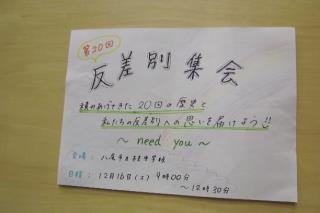 第20回
反差別集会
積みあげてきた20回の歴史と
私たちの反差別への思いを届けよう!!
~ need you ~
会場: 八尾市立 中学校
日時: 12月16日(土) 9時00分
~12時30分